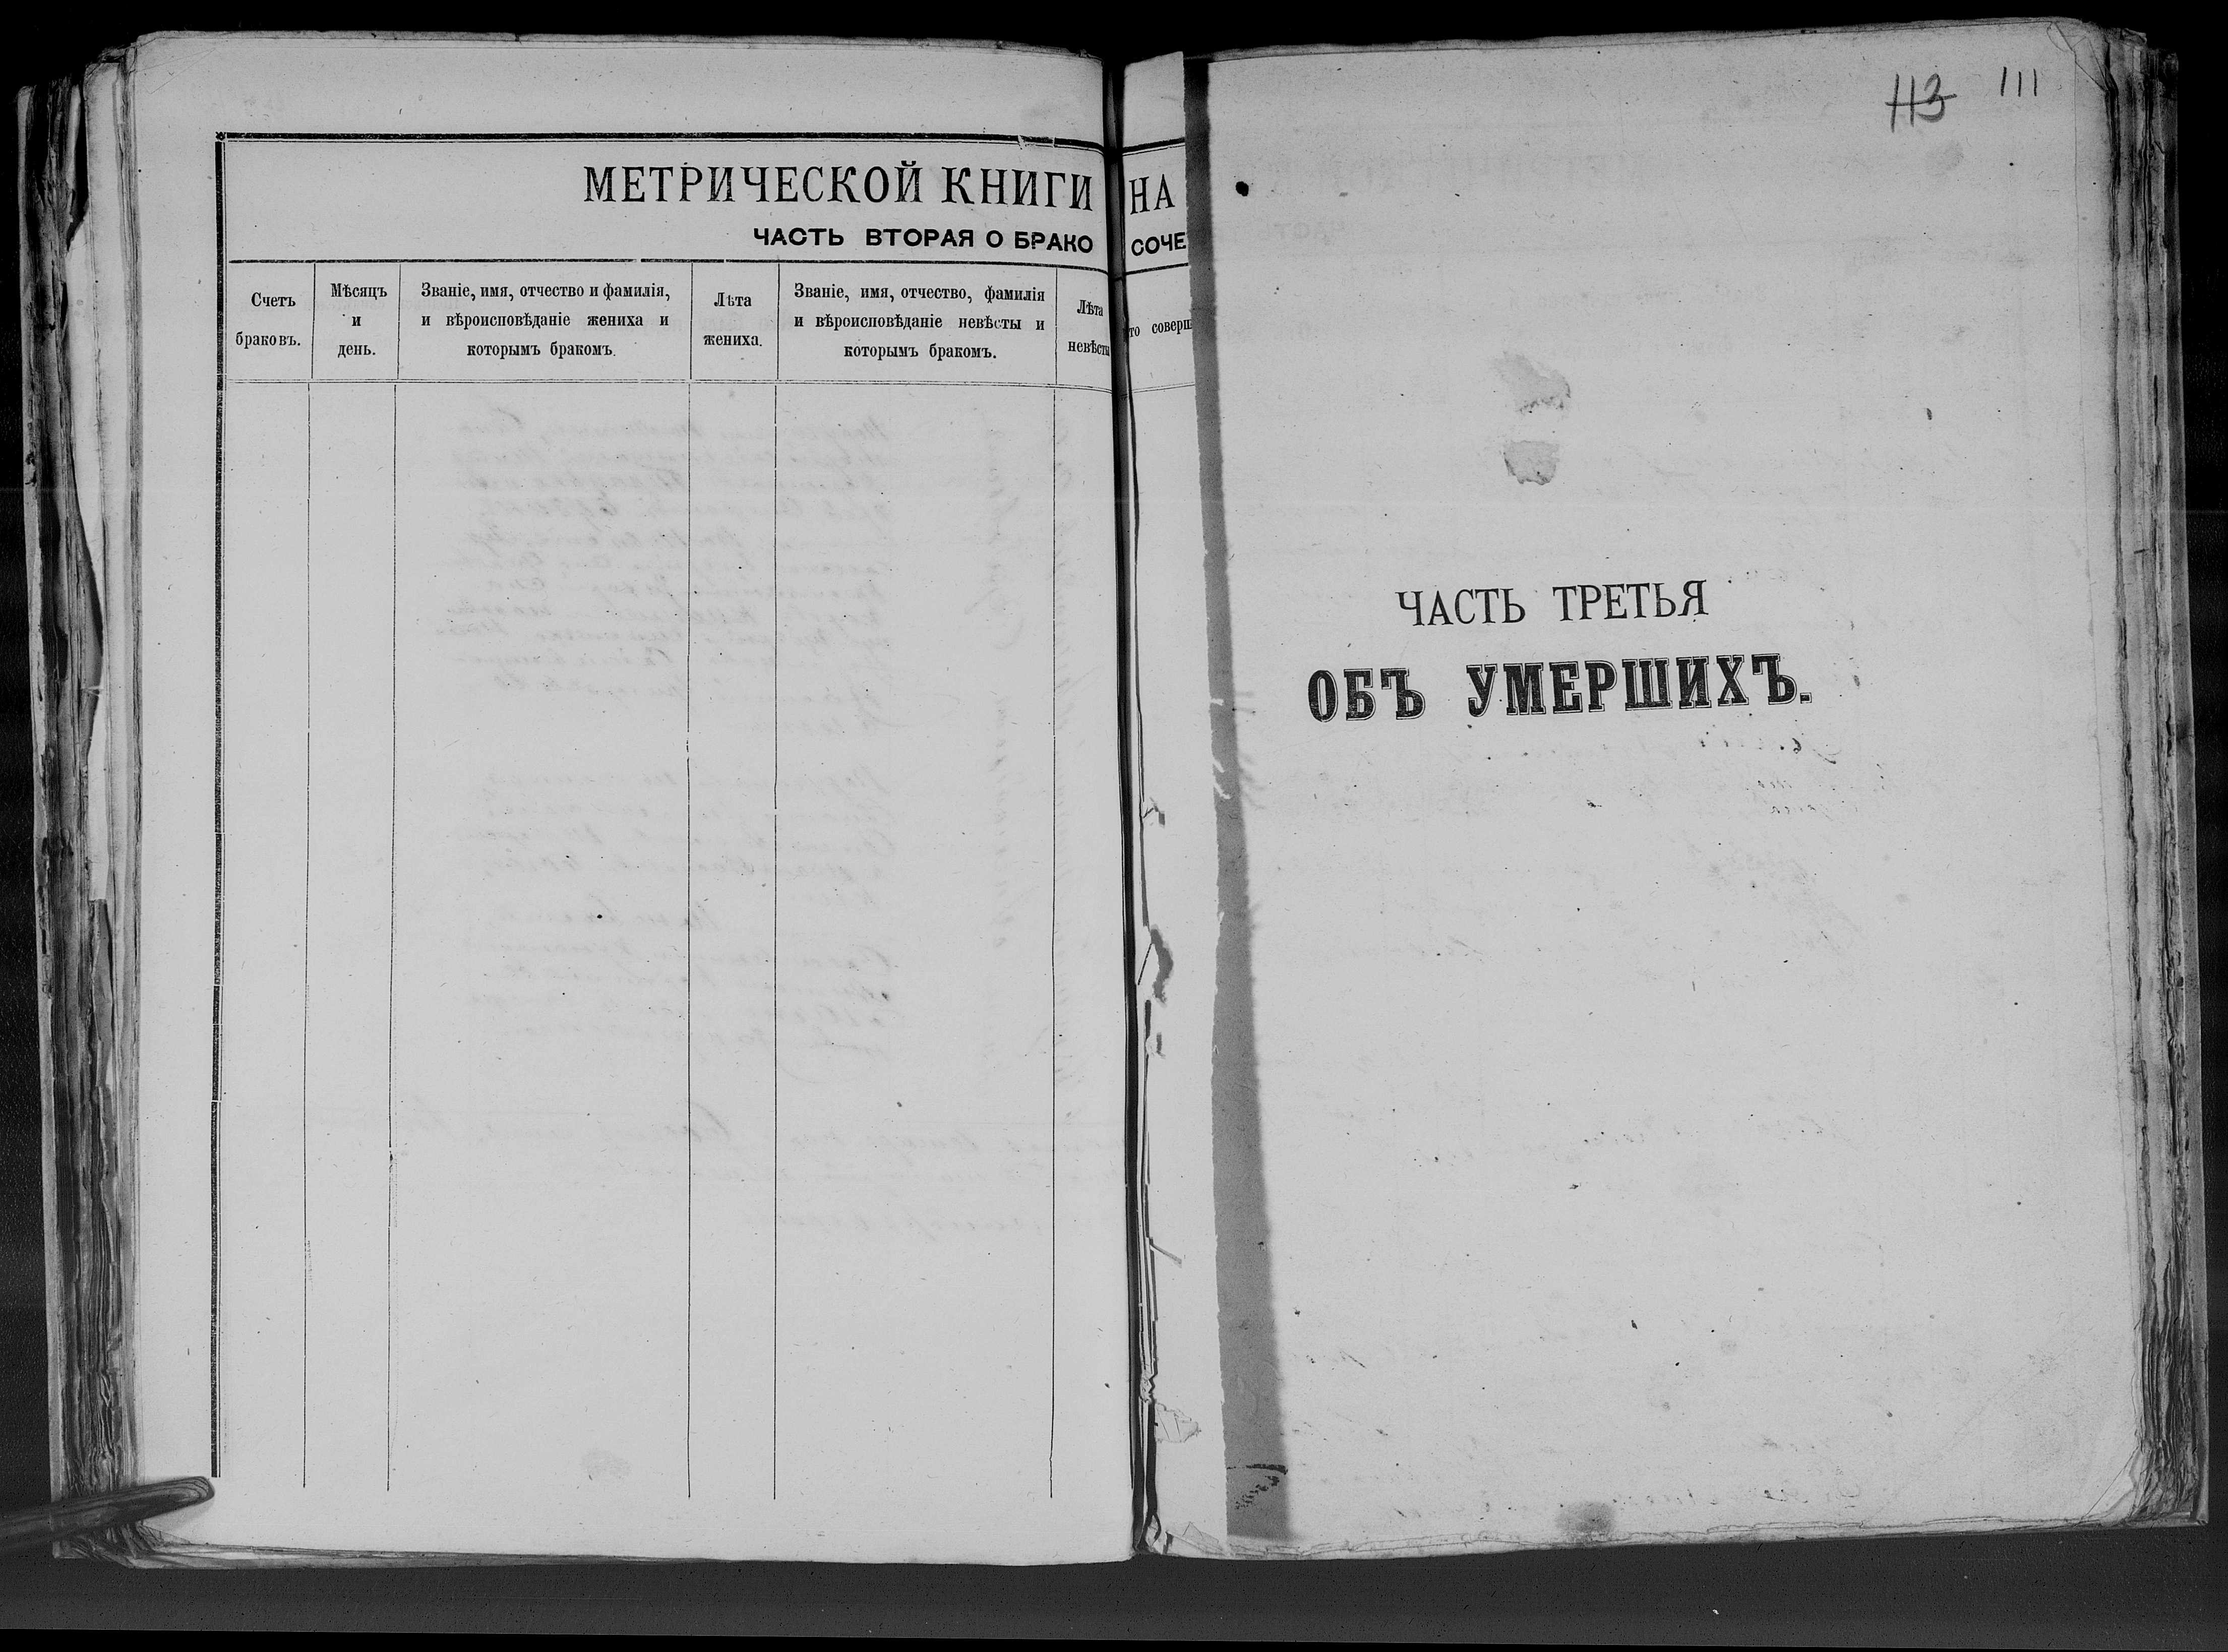 МЕТРИЧЕСКОЙ КНИГИ НА
ЧАСТЬ ВТОРАЯ О БРАКО СОЧЕ
Счетъ
браковъ.
Мѣсяцъ
и
день.
Званіе, имя, отчество и фамилія,
и вѣроисповѣданіе жениха и
которымъ бракомъ.
Лѣта
жениха.
Званіе, имя, отчество, фамилія
и вѣроисповѣданіе невѣсты и
которымъ бракомъ.
Лѣта
невѣсты
то соверш
113 111
ЧАСТЬ ТРЕТЬЯ
ОБЪ УМЕРШИХЪ.